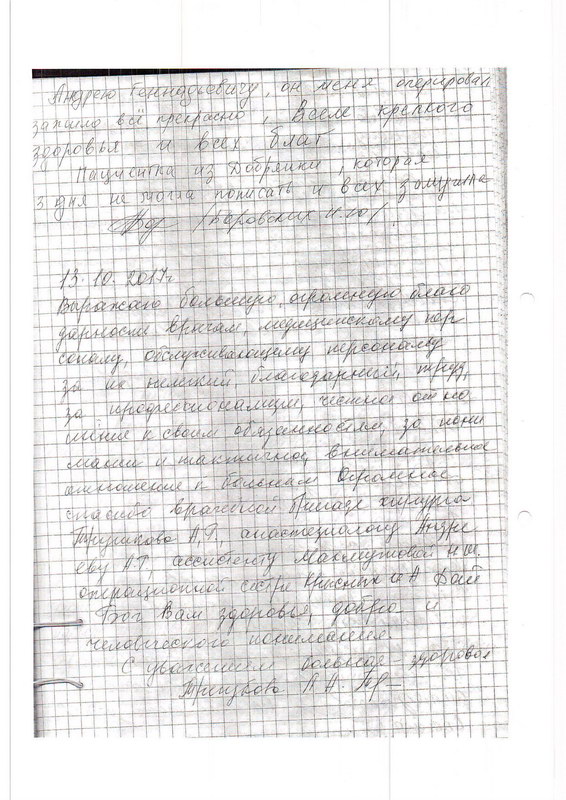 Андрею Геннадьевичу, он меня оперировал
зашило всё прекрасно, Всем крепкого
здоровья и всех благ
Пациентка из Добрянки, которая
3 дня не могла пописать и всех замучила
/Боровских Н.Ю/.
13.10.2017г
Выражаю большую, огромную благо
дарность врачам, медицинскому пер
соналу, обслуживающему персоналу
за их нелегкий, благодарный, труд,
за профессионализм, честное отно
шение к своим обязанностям, за пони
мание и тактичное, внимательное
отношение к больным Огромное
спасибо врачебной бригаде хирурга
А.Г., анастезиологу Андре
еву А.Г, ассистенту Махмутовой Н.Ш.
операционной сестре И А Дай
Бог Вам здоровья, добра и
человеческого понимания.
С уважением больная - здоровая
Л.Н.